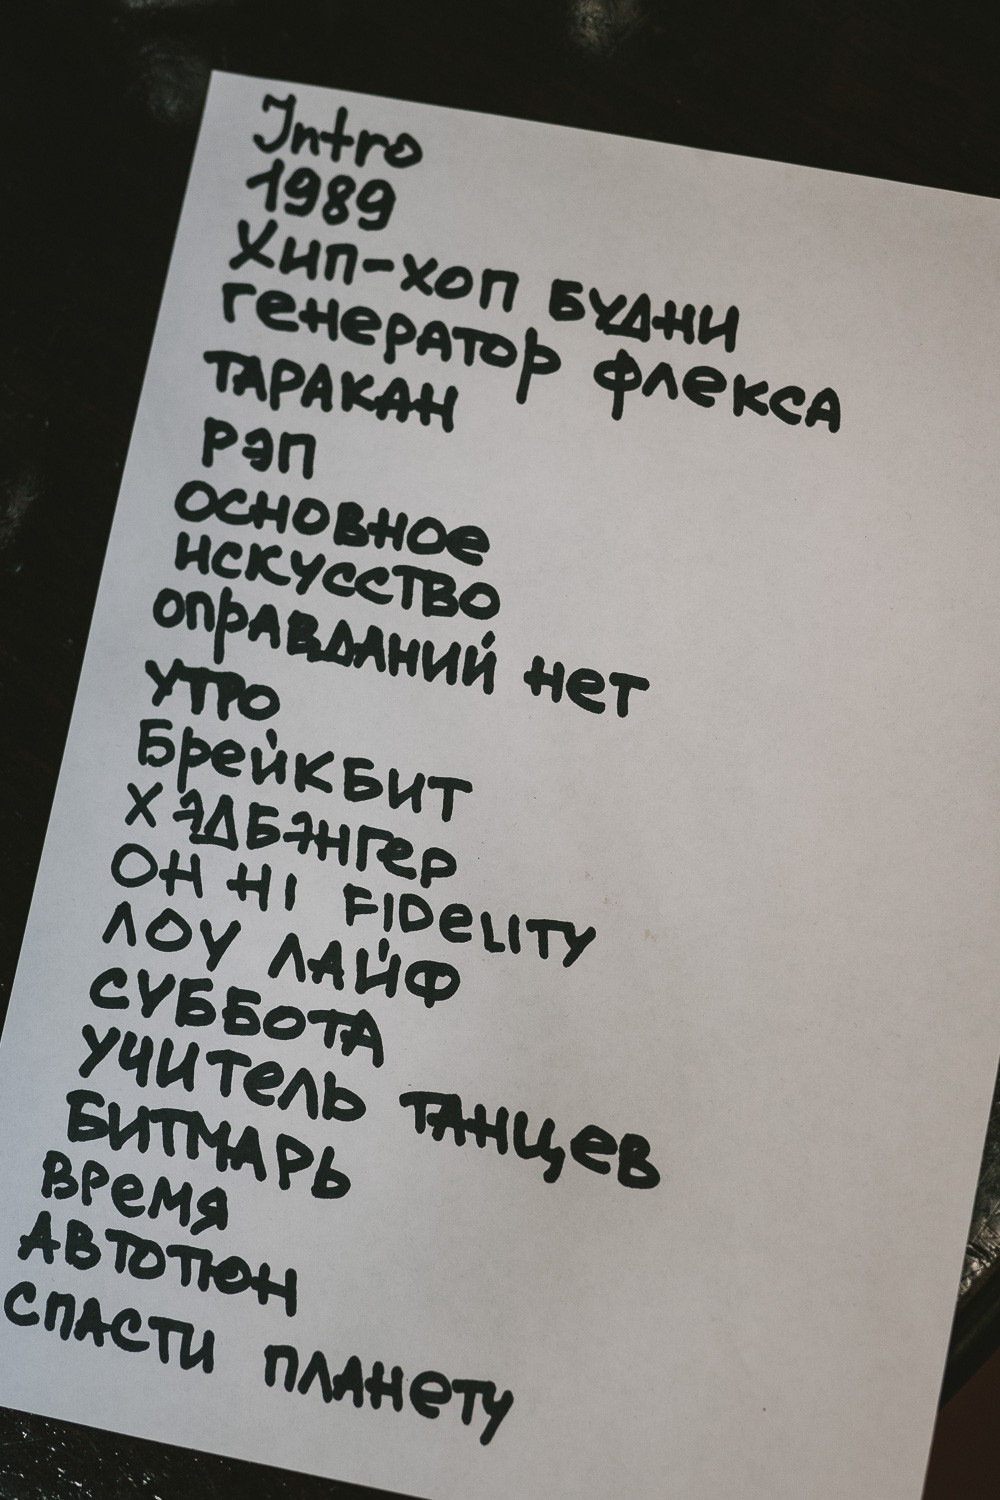 Intro
1989
Хип-хоп будни
генератор флекса
таракан
рэп
основное
искусство
оправданий нет
утро
Брейкбит
хэдбэнгер
он HI FIDeLITY
лоу лайф
суббота
учитель танцев
битмарь
время
автотюн
спасти планету